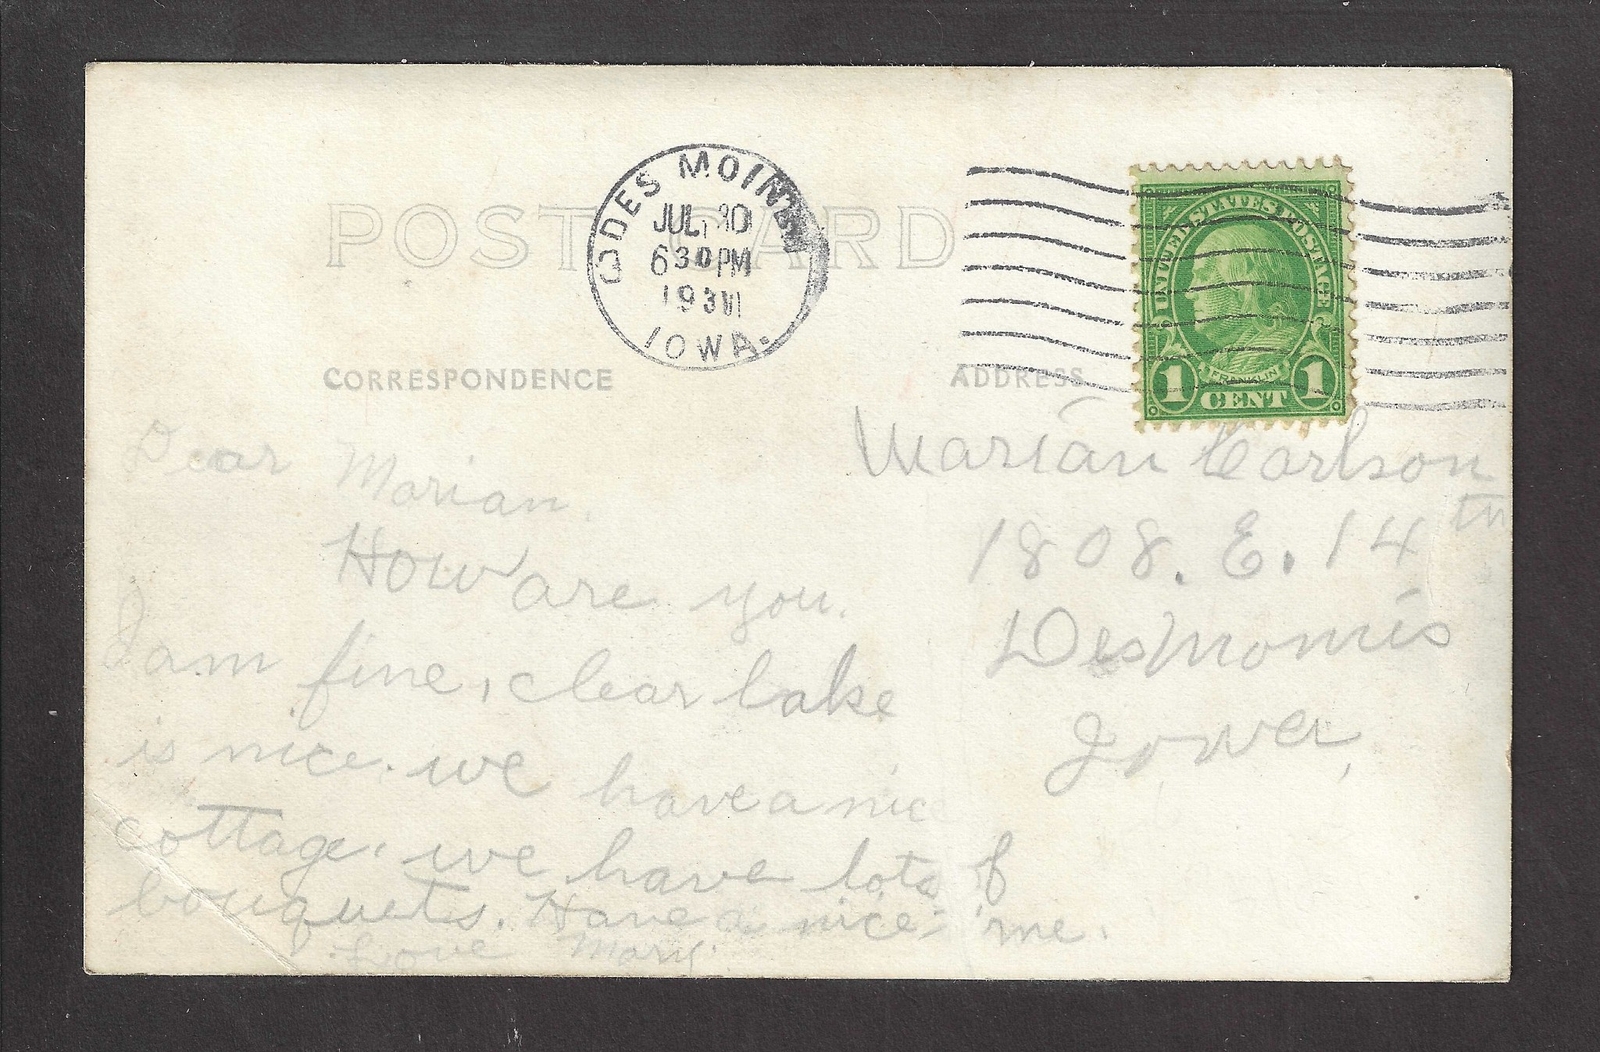 POST CARD
DES MOINES
JUL 30
630 PM
IOWA.
UNITED STATES POSTAGE
FRANKLIN
1 CENT 1
CORRESPONDENCE
ADDRESS
Dear Marian,
How are you.
I am fine, clear lake
is nice. we have a nic
cottage. we have lots of
bouquets. Have a nice time.
Love Mary.
Marian Carlson
1808. E. 14th
Des Monies
Iowa,